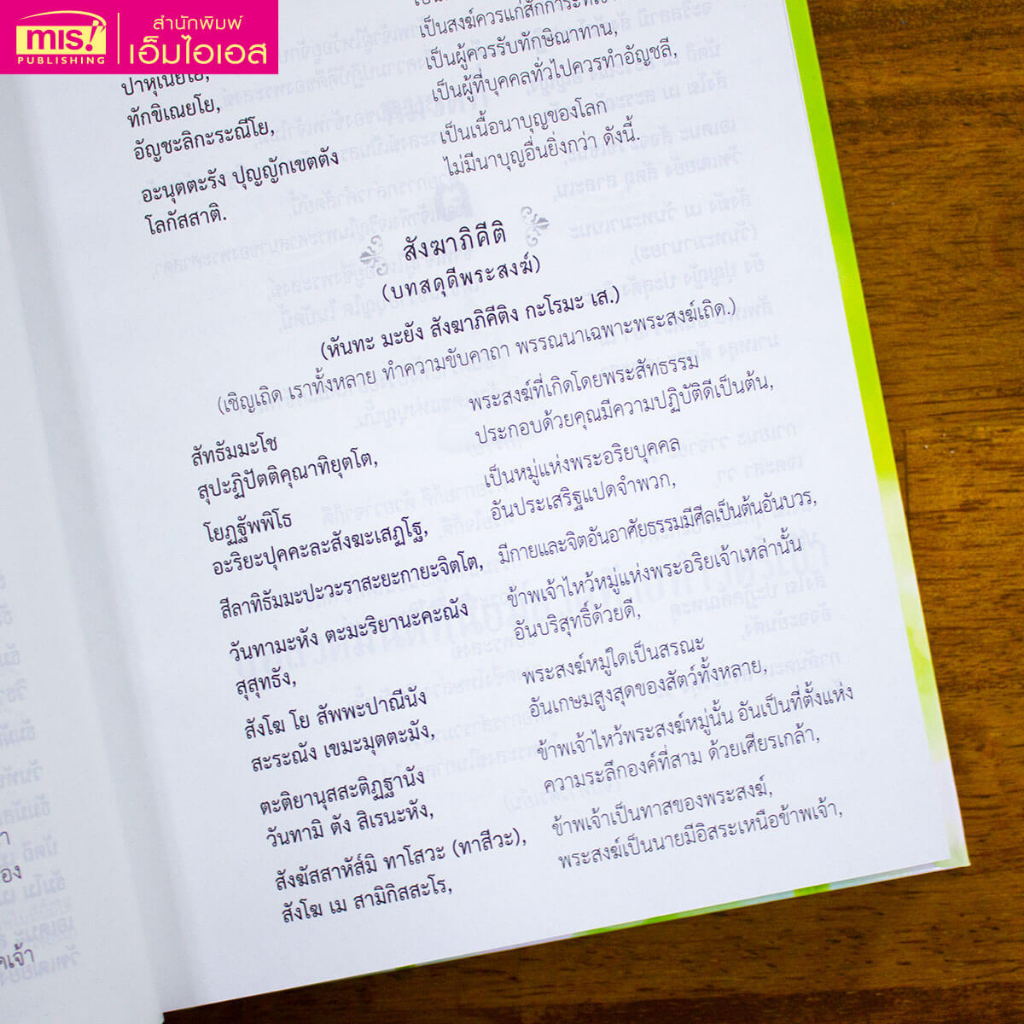 mis!
PUBLISHING
สำนักพิมพ์
เอ็มไอเอส
เป็นสงฆ์ควรแก่สักการะที่เขา
ปาหุเนยโย, เป็นผู้ควรรับทักษิณาทาน,
ทักขิเณยโย, เป็นผู้ที่บุคคลทั่วไปควรทำอัญชลี,
อัญชะลิกะระณีโย,
เป็นเนื้อนาบุญของโลก
อะนุตตะรัง ปุญญักเขตตัง ไม่มีนาบุญอื่นยิ่งกว่า ดังนี้.
โลกัสสาติ.
สังฆาภิคีติ
(บทสดุดีพระสงฆ์)
(หันทะ มะยัง สังฆาภิคีติง กะโรมะ เส.)
(เชิญเถิด เราทั้งหลาย ทำความขับคาถา พรรณนาเฉพาะพระสงฆ์เถิด.)
สัทธัมมะโช พระสงฆ์ที่เกิดโดยพระสัทธรรม
สุปะฏิปัตติคุณาทิยุตโต, ประกอบด้วยคุณมีความปฏิบัติดีเป็นต้น,
โยฏฐัพพิโธ เป็นหมู่แห่งพระอริยบุคคล
อะริยะปุคคะละสังฆะเสฏโฐ, อันประเสริฐแปดจำพวก,
สีลาทิธัมมะปะวะราสะยะกายะจิตโต, มีกายและจิตอันอาศัยธรรมมีศีลเป็นต้นอันบวร,
วันทามะหัง ตะมะริยานะคะณัง ข้าพเจ้าไหว้หมู่แห่งพระอริยเจ้าเหล่านั้น
สุสุทธัง, อันบริสุทธิ์ด้วยดี,
สังโฆ โย สัพพะปาณีนัง พระสงฆ์หมู่ใดเป็นสรณะ
สะระณัง เขมะมุตตะมัง, อันเกษมสูงสุดของสัตว์ทั้งหลาย,
ตะติยานุสสะติฏฐานัง ข้าพเจ้าไหว้พระสงฆ์หมู่นั้น อันเป็นที่ตั้งแห่ง
วันทามิ ตัง สิเรนะหัง, ความระลึกองค์ที่สาม ด้วยเศียรเกล้า,
สังฆัสสาหัส๎มิ ทาโสวะ (ทาสีวะ), ข้าพเจ้าเป็นทาสของพระสงฆ์,
สังโฆ เม สามิกิสสะโร, พระสงฆ์เป็นนายมีอิสระเหนือข้าพเจ้า,